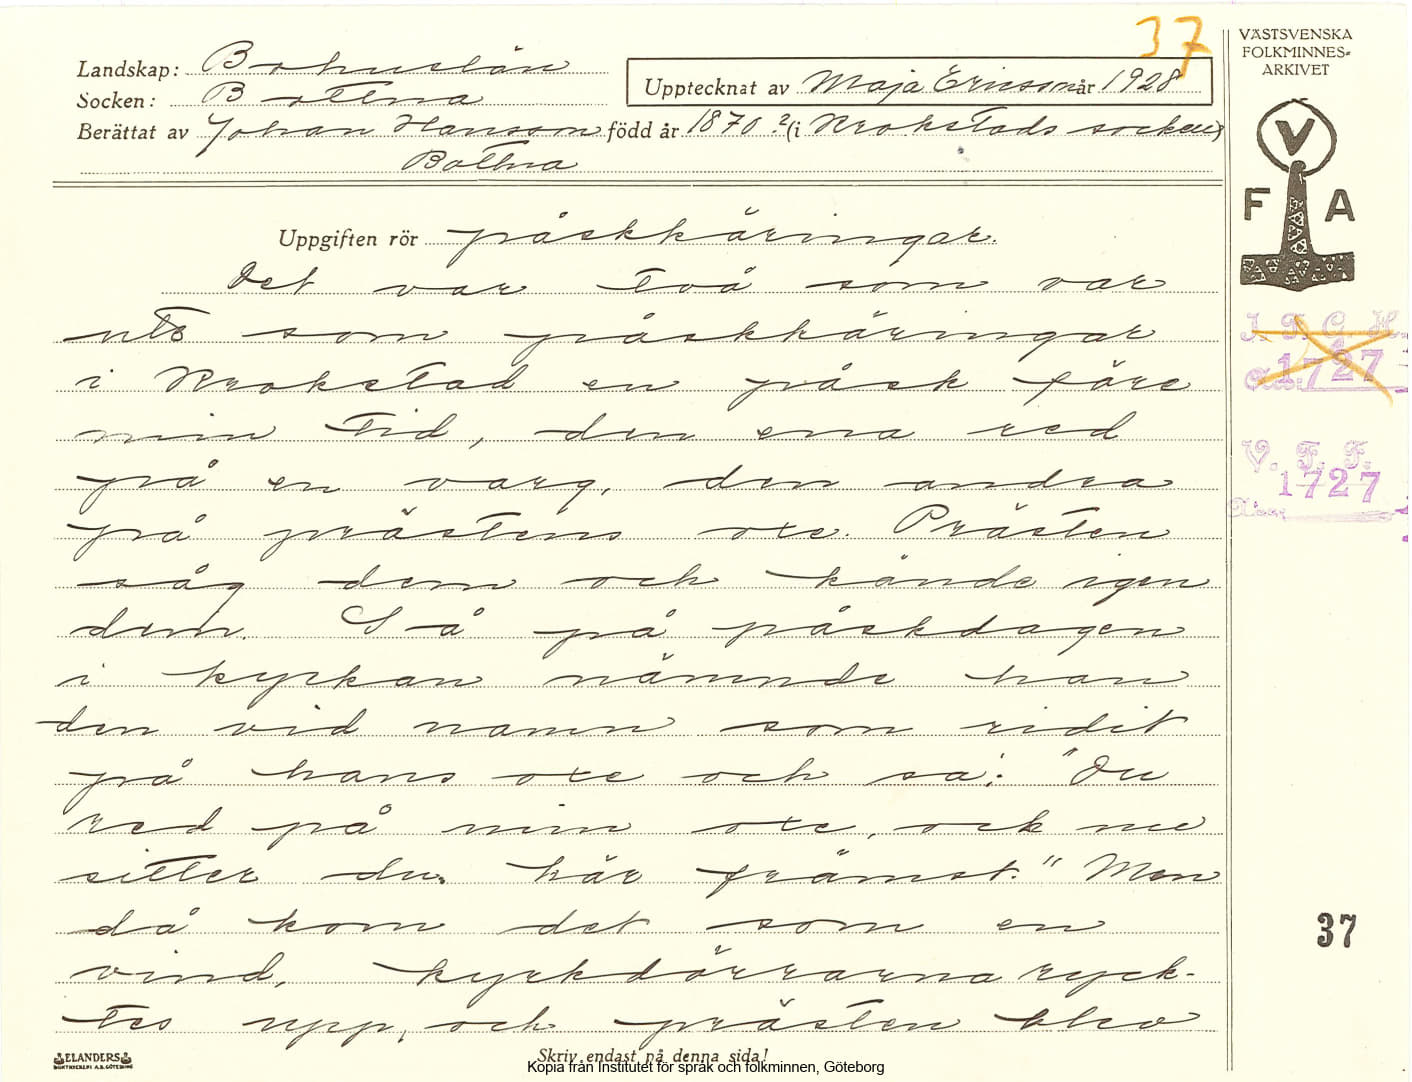 37
VÄSTSVENSKA
FOLKMINNES=
ARKIVET
Landskap: Bohuslän
Upptecknat av Maja Ericsson år 1928
Socken: Bottna
Berättat av Johan Hansson född år 1870? (i Krokstads socken)
Bottna
V
F A
Uppgiften rör påskkäringar.
Det var två som var
ute som påskkäringar
i Krokstad en påsk före
min tid, den ena red
på en varg, den andra
på prästens oxe. Prästen
såg dem och kände igen
dem. Så på påskdagen
i kyrkan nämnde han
den vid namn som ridit
på hans oxe och sa: "Du
red på min oxe, och nu
sitter du här främst." Men
då kom det som en
vind, kyrkdörrarna ryck-
tes upp, och prästen blev
I. F. G. H.
1727
V. F. F.
1727
37
ELANDERS
BOKTRYCKERI A.B. GÖTEBORG
Skriv endast på denna sida!
Kopia från Institutet för språk och folkminnen, Göteborg